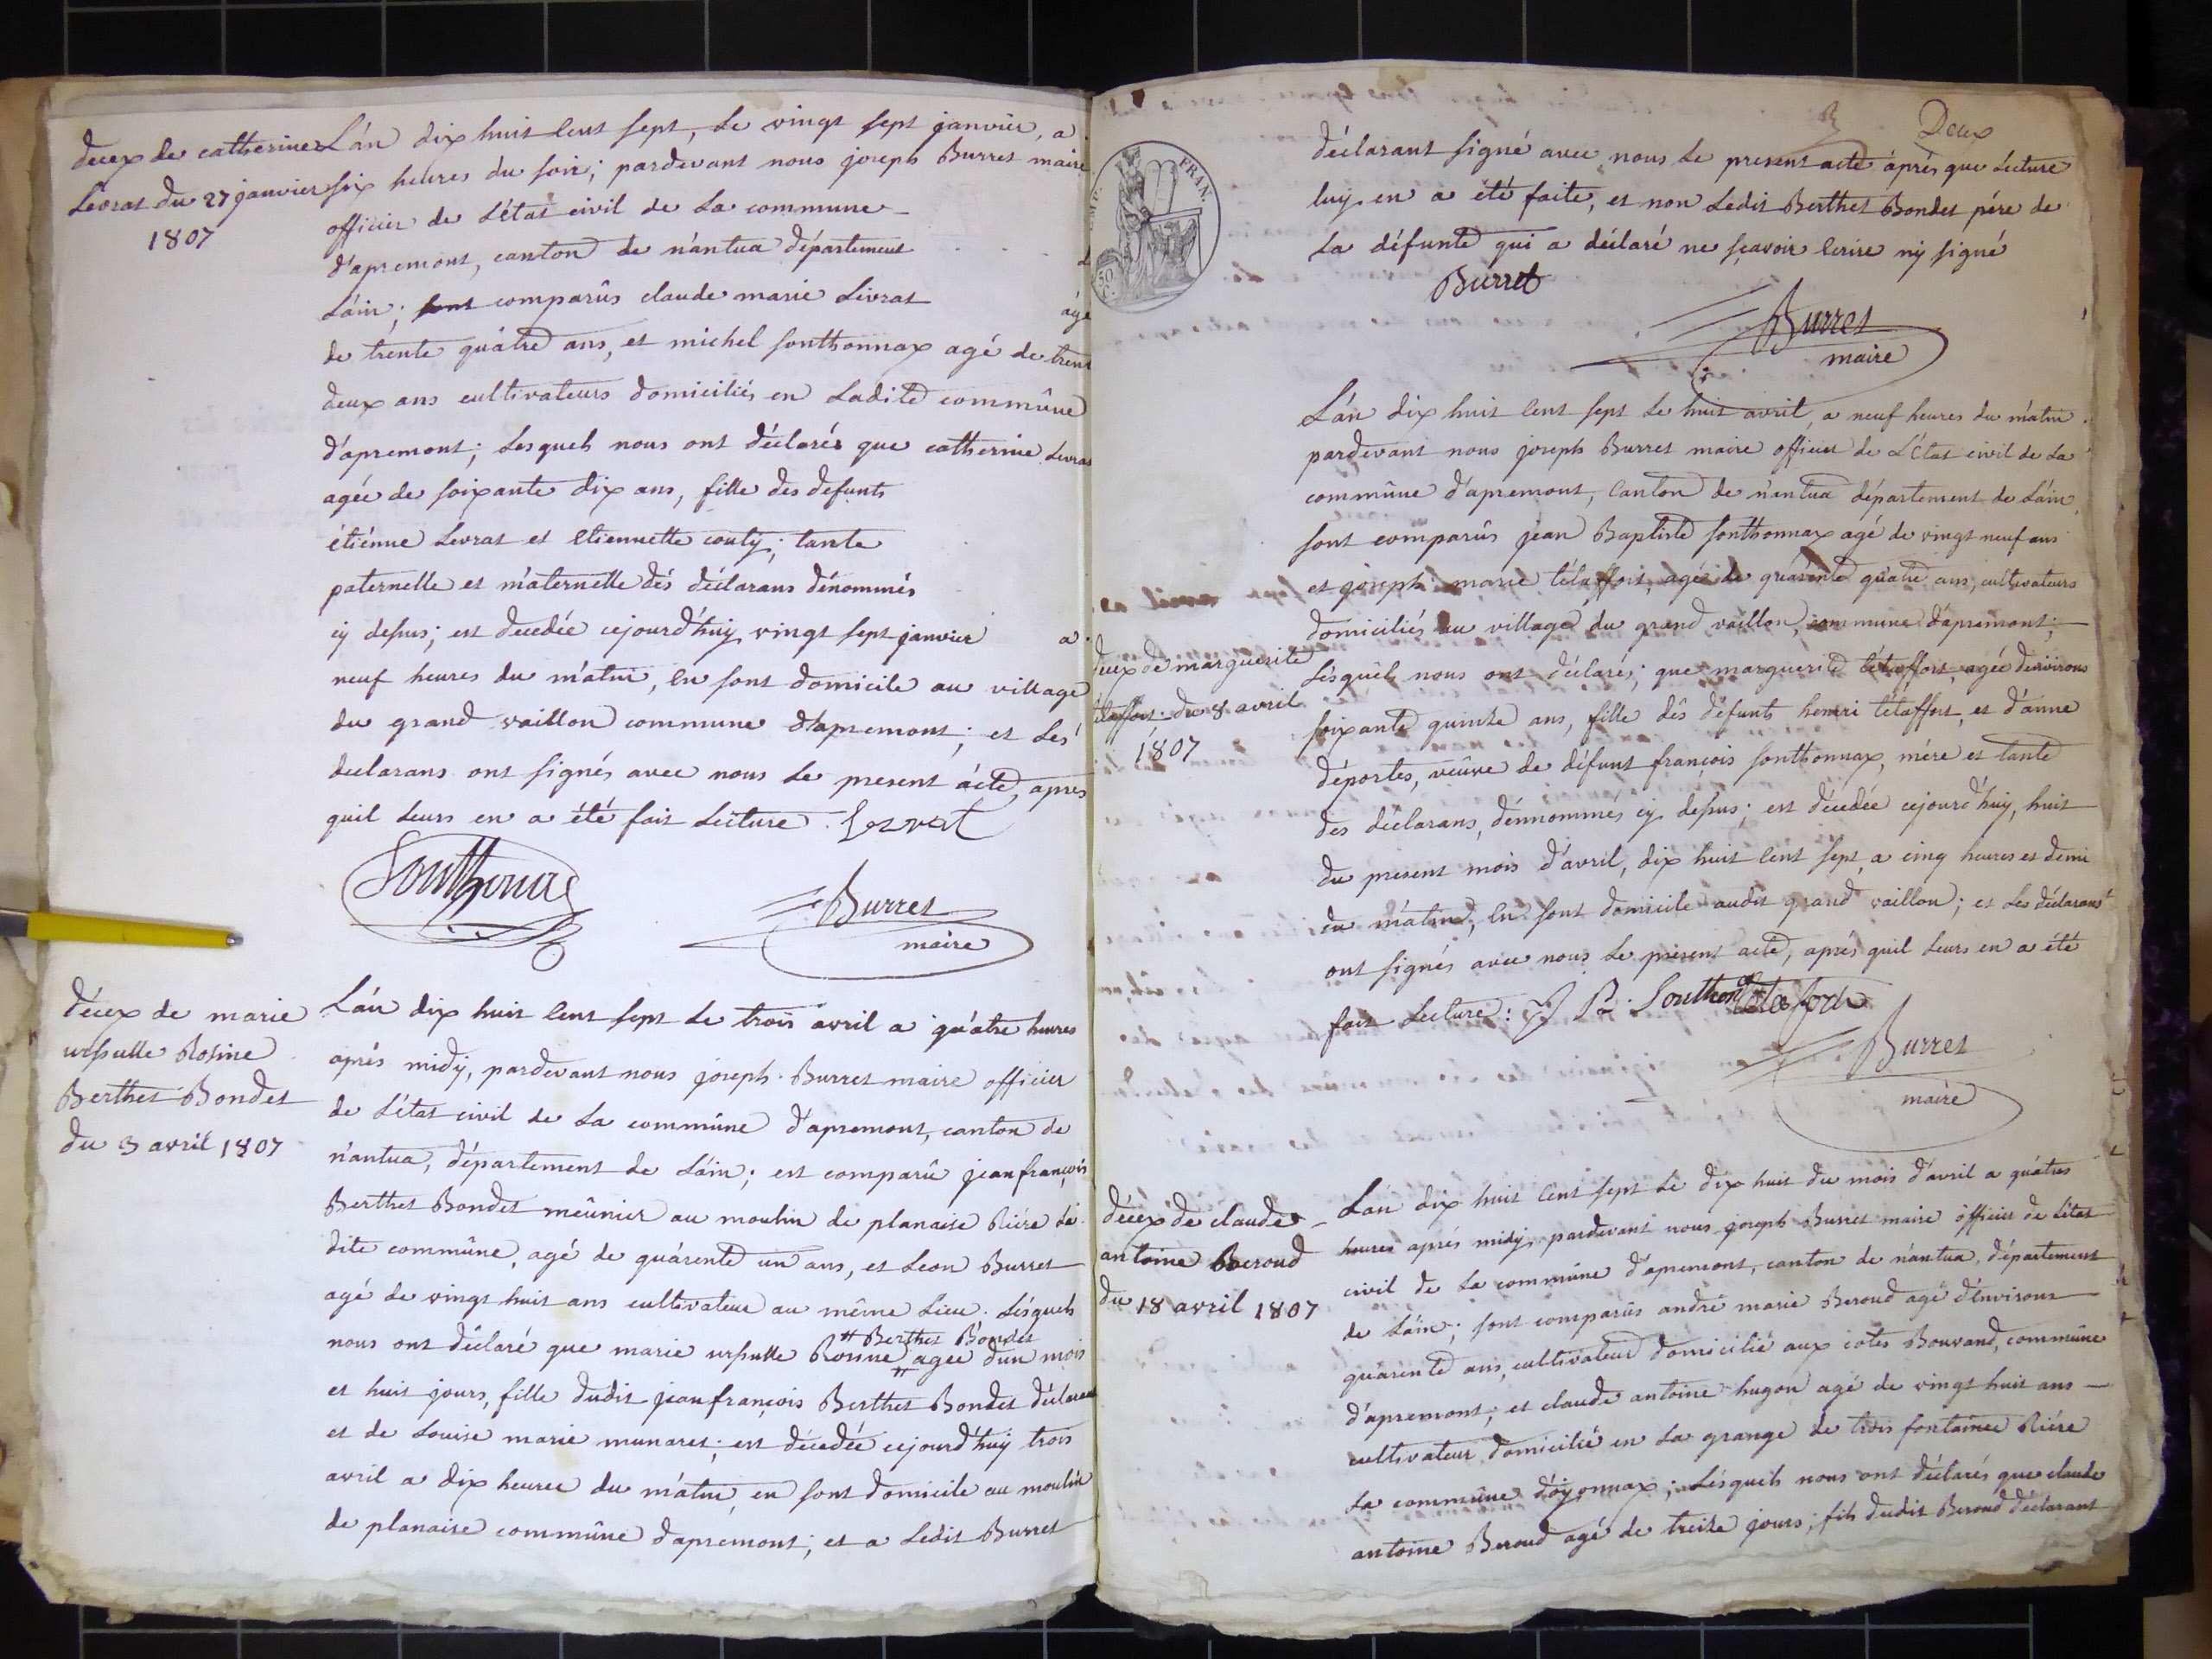 déces de catherine
Levrat du 27 janvier
1807
L'án dix huit cent sept, le vingt sept janvier, a
six heures du soir; pardevant nous joseph Burret maire
officier de l'état civil de la commune
d'apremont, canton de nántua département
Láin; sont comparûs claude marie Livrat
áge
de trente quátre ans, et michel sonthonnax agé de trent
deux ans cultivateurs domiciliés en Ladite commûne
d'apremont; Lesquels nous ont déclarés que catherine Levrat
agée de soixante dix ans, fille des defunts
étiénne Levrat et Etiennette couty; tante
paternelle et máternelle dés déclarans dénommés
cy dessus; est decedée cejourd'huy vingt sept janvier a
neuf heures du mátin, en sont domicile au village
du grand vaillon commune d'apremont; et Lés
declarans ont signés avec nous Le present ácte, apres
quil Leurs en a été fait Lecture. Levrat
Sonthonax
Burret
maire
déces de marie
ursulle Rosine
Berthet Bondet
du 3 avril 1807
L'án dix huit cent sept Le trois avril a quátre heures
aprés midy, pardevant nous joseph Burret maire officier
de L'état civil de La commûne d'apremont, canton de
nántua, département de Láin; est comparû jean françois
Berthet Bondet meûnier au moulin de planaise Riére la
dite commûne, agé de quárente un ans, et Leon Burret
agé de vingt huit ans cultivateur au même Lieu. Lésquels
# Berthet Bondet
nous ont déclaré que marie ursulle Rosine # agée d'un mois
et huit jours, fille dudit jean françois Berthet Bondet déclarant
et de Louise marie munaret; est décedée cejourd'huy trois
avril a dix heures du mátin, en sont domicile au moulin
de planaise commûne d'apremont; et a Ledit Burret
Deux
FRAN.
50
déclarant signé avec nous Le present acte áprés que Lecture
luy en a été faite, et non Ledit Berthet Bondet pére de
La défunte qui a déclaré ne sçavoir Ecrire ny signé
Burret
Burret
maire
L'án dix huit cent sept Le huit avril, a neuf heures du mátin
pardevant nous joseph Burret maire officier de L'état civil de La
commûne d'apremont, canton de nántua département de Láin,
sont comparûs jean Baptiste sonthonnax agé de vingt neuf ans
et joseph marie tétaffort, agé de quárente quátre ans, cultivateurs
domiciliés au village du grand vaillon, commune d'apremont;
déces de marguerite
tétaffort du 8 avril
1807
Lésquels nous ont déclarés; que marguerite tétaffort, agée d'environs
soixante quinze ans, fille dés défunts henri tétaffort, et d'ánne
déportes, veûve de défunt françois sonthonnax, mére et tante
des déclarans, dénnommés cy dessus; est décedée cejourd'huy, huit
du present mois d'avril, dix huit cent sept a cinq heures et demi
du mátin, en sont domicile audit grand vaillon; et Les déclarans
ont signés avec nous Le present acte, aprés quil Leurs en a été
fait Lecture: J B. Sonthon
Burret
maire
déces de claude
antoine Beroud
du 18 avril 1807
L'án dix huit cent sept Le dix huit du mois d'avril a quátres
heures aprés midy, pardevant nous joseph Burret maire officier de L'état
civil de La commûne d'apremont, canton de nántua, département
de Láin; sont comparûs andré marie Beroud agé d'environs
quárente ans, cultivateur domicilié aux cotes Bouvand, commûne
d'apremont; et claude antoine hugon agé de vingt huit ans
cultivateur domicilié en La grange de trois fontaines Riére
La commûne d'óyonnax; Lésquels nous ont déclarés que claude
antoine Beroud agé de treize jours; fils dudit Beroud déclarant